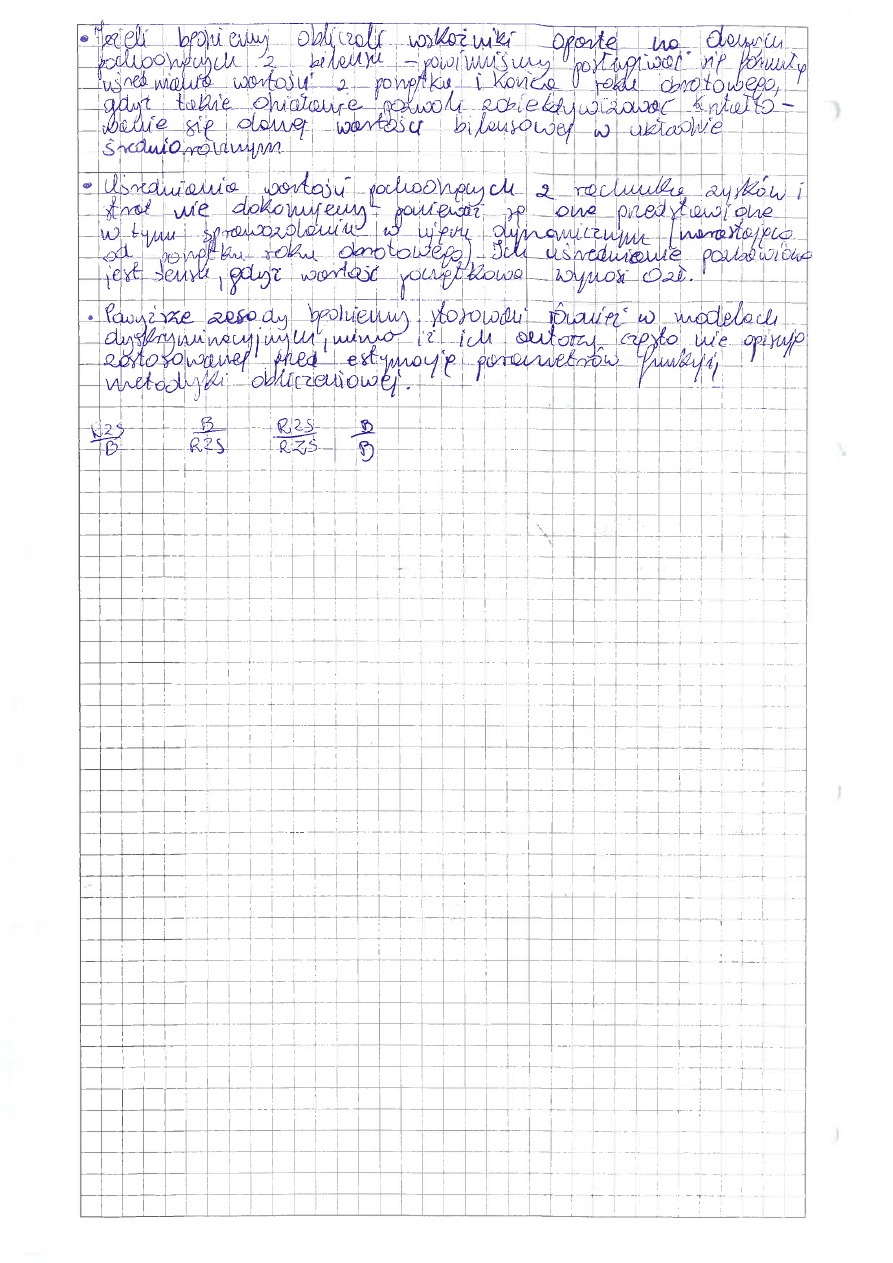 • Jeżeli będziemy obliczali wskaźniki oparte na danych
pochodzących z bilansu – powinniśmy posługiwać się formułą
uśredniania wartości z początku i końca roku obrotowego,
gdyż takie działanie pozwoli zobiektywizować kształto-
wanie się danej wartości bilansowej w układzie
średniorocznym
• Uśredniania wartości pochodzących z rachunku zysków i
strat nie dokonujemy ponieważ są one przedstawione
w tym sprawozdaniu w ujęciu dynamicznym (narastająco
od początku roku obrotowego) Ich uśrednianie pozbawione
jest sensu, gdyż wartość początkowa wynosi 0zł.
• Powyższe zasady będziemy stosowali również w modelach
dyskryminacyjnych, mimo iż ich autorzy często nie opisują
zastosowanej przed estymacją parametrów funkcji
metodyki obliczeniowej.
RZS B RZS B
B RZS RZS B